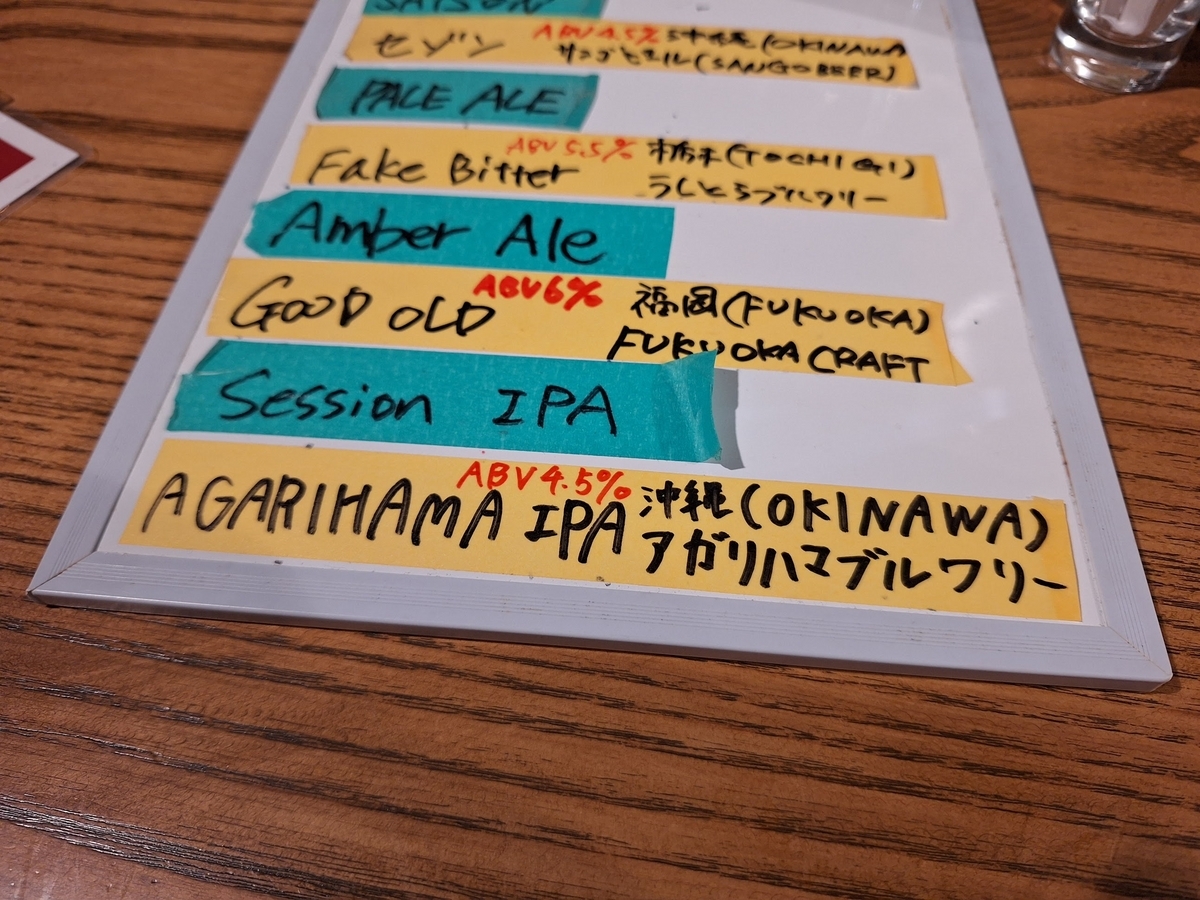 SAISON
セゾン ABV 4.5% 沖縄(OKINAWA)
サンゴビール(SANGO BEER)
PALE ALE
Fake Bitter ABV 5.5% 栃木(TOCHIGI)
うしとらブルワリー
Amber Ale
GOOD OLD ABV 6% 福岡(FUKUOKA)
FUKUOKA CRAFT
Session IPA
AGARIHAMA IPA ABV 4.5% 沖縄(OKINAWA)
アガリハマブルワリー